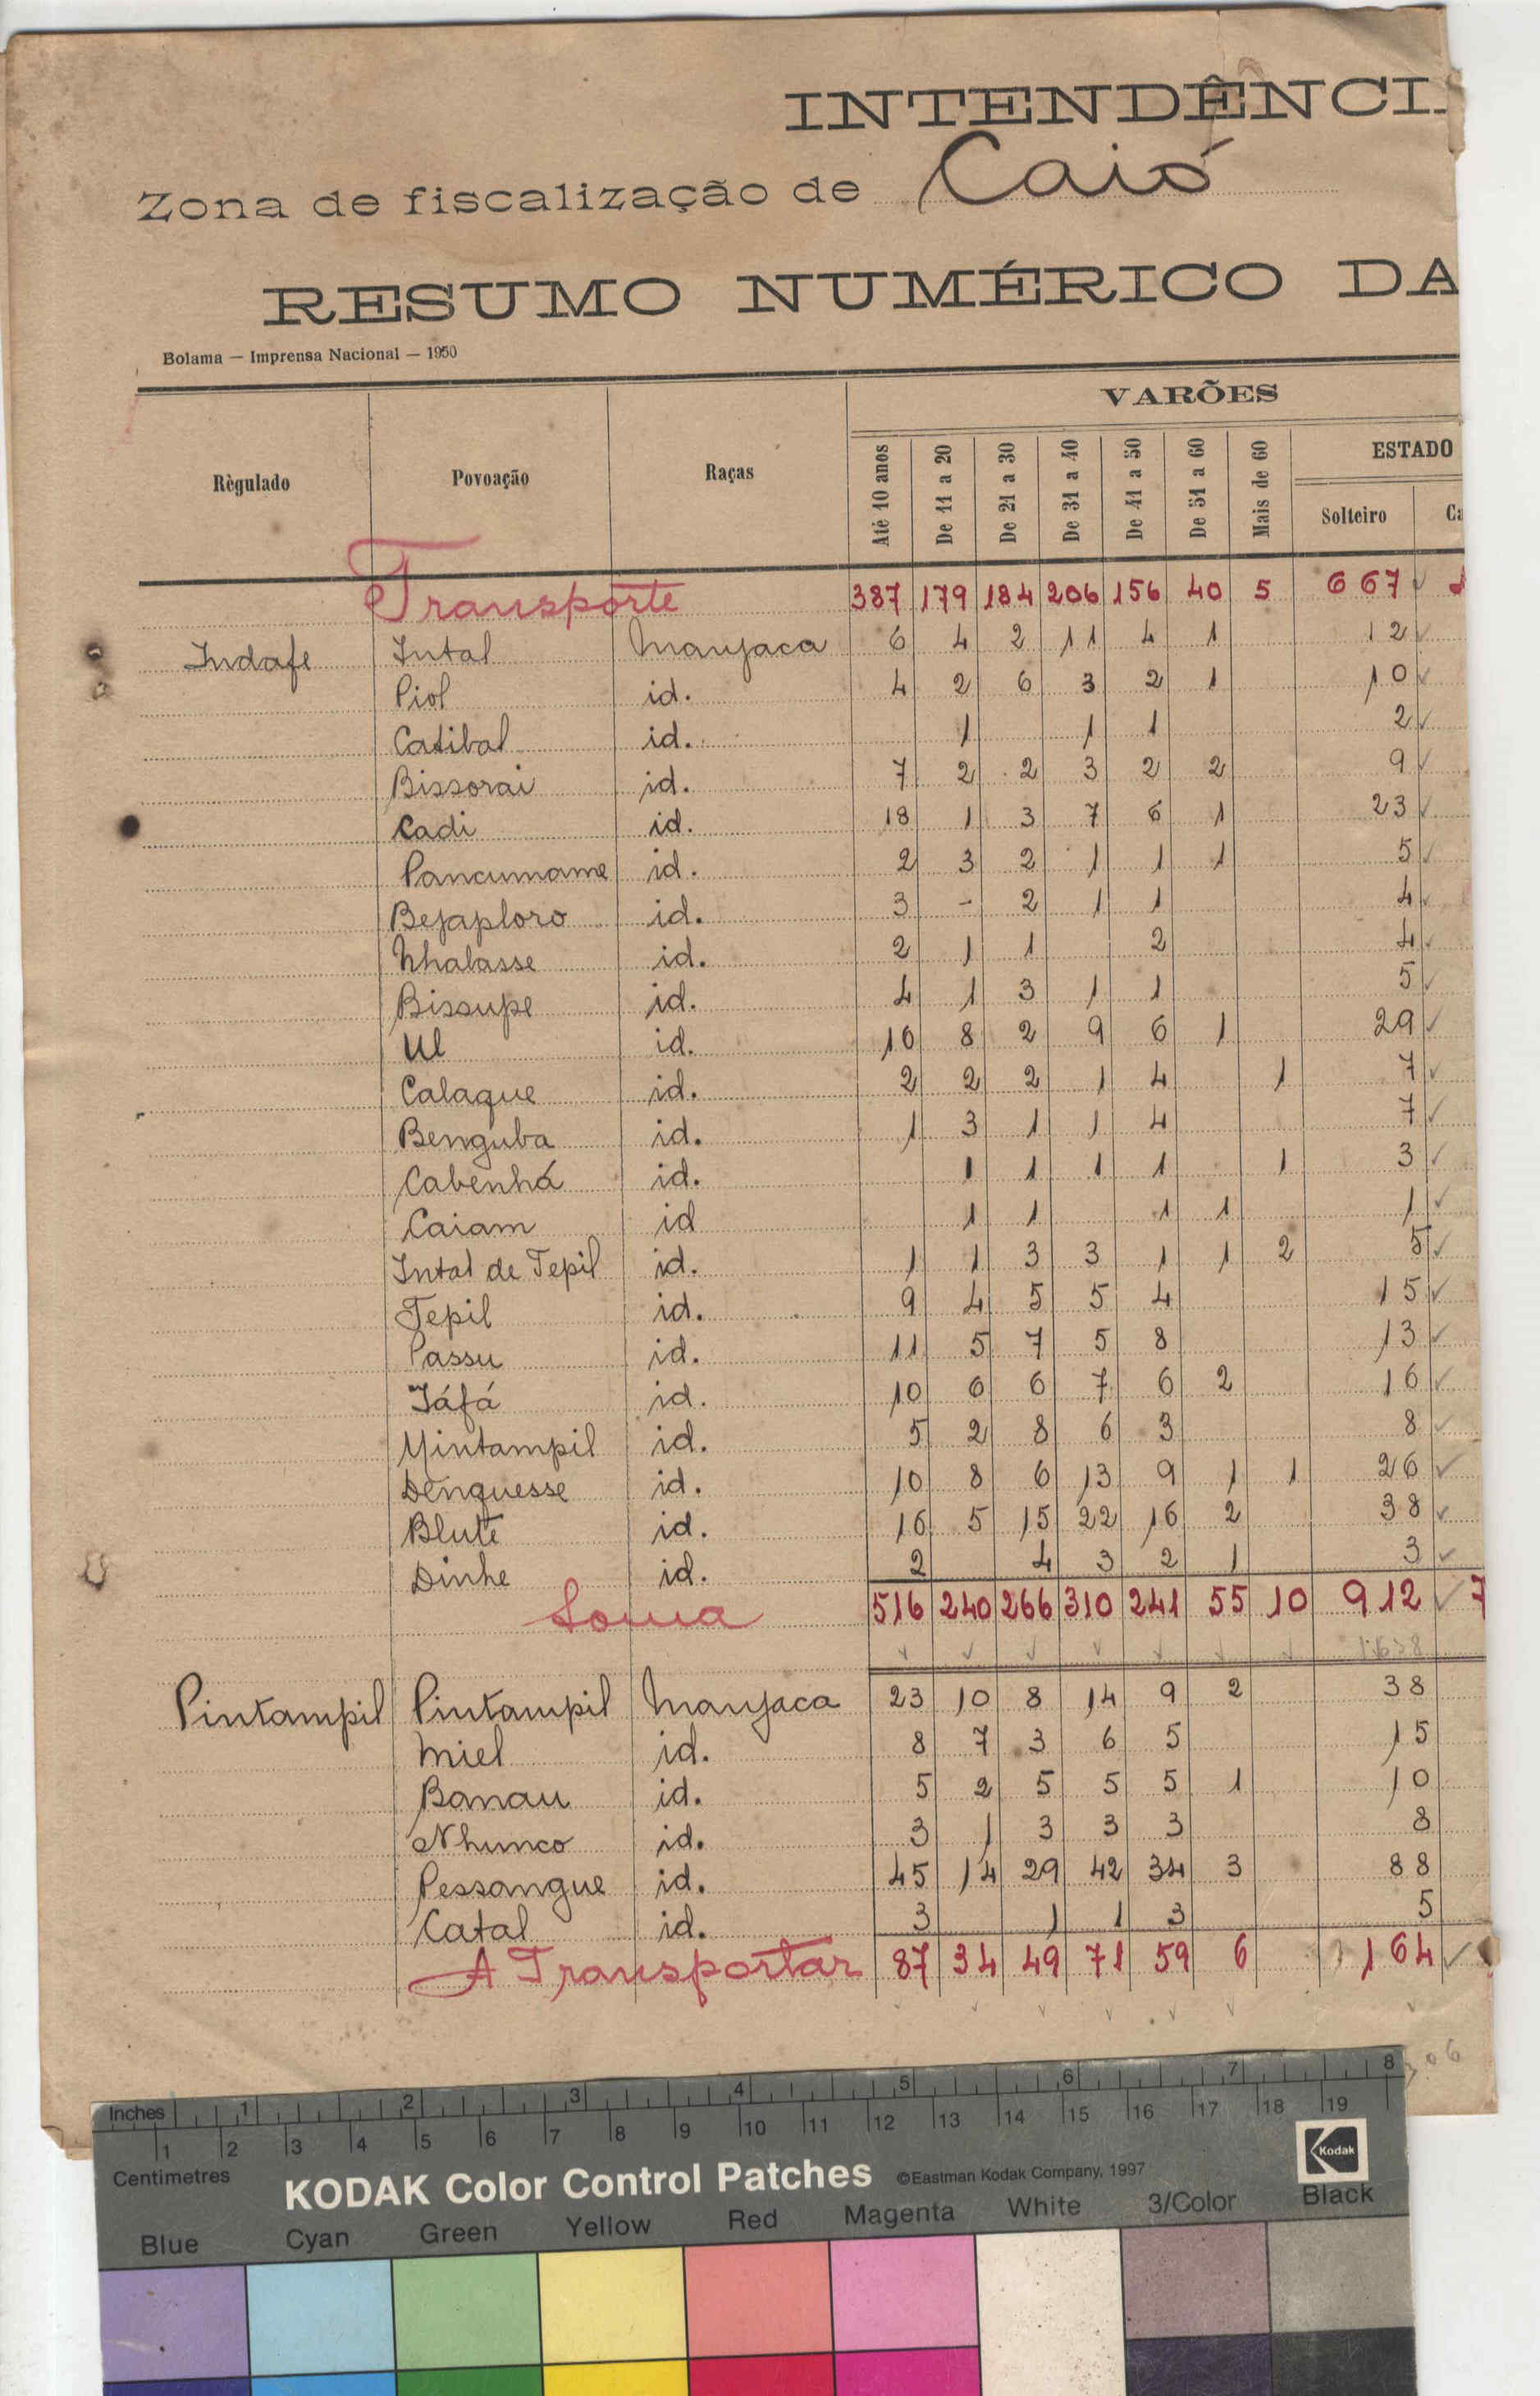 INTENDÊNCI
Zona de fiscalização de Caió
RESUMO NUMÉRICO DA
Bolama — Imprensa Nacional — 1950
VARÕES
Règulado Povoação Raças Até 10 anos De 11 a 20 De 21 a 30 De 31 a 40 De 41 a 50 De 51 a 60 Mais de 60 ESTADO
Solteiro Ca
Transporte 387 179 184 206 156 40 5 667
Indafe Intal Manjaca 6 4 2 11 4 1 12
Piol id. 4 2 6 3 2 1 10
Catibal id. 1 1 1 2
Bissorai id. 7 2 2 3 2 2 9
Cadi id. 18 1 3 7 6 1 23
Pancumame id. 2 3 2 1 1 1 5
Bejaploro id. 3 - 2 1 1 4
Nhalasse id. 2 1 1 2 4
Bissupe id. 4 1 3 1 1 5
Ul id. 16 8 2 9 6 1 29
Calaque id. 2 2 2 1 4 1 7
Benguba id. 1 3 1 1 4 7
Cabenhá id. 1 1 1 1 1 3
Caiam id 1 1 1 1 1
Intal de Tepil id. 1 1 3 3 1 1 2 5
Tepil id. 9 4 5 5 4 15
Passu id. 11 5 7 5 8 13
Iáfá id. 10 6 6 7 6 2 16
Mintampil id. 5 2 8 6 3 8
Denguesse id. 10 8 6 13 9 1 1 26
Blute id. 16 5 15 22 16 2 38
Dinhe id. 2 4 3 2 1 3
Soma 516 240 266 310 241 55 10 912 7
1.638
Pintampil Pintampil Manjaca 23 10 8 14 9 2 38
Miel id. 8 7 3 6 5 15
Banau id. 5 2 5 5 5 1 10
Nhunco id. 3 1 3 3 3 8
Pessangue id. 45 14 29 42 34 3 88
Catal id. 3 1 1 3 5
A Transportar 87 34 49 71 59 6 164
306
Inches 1 2 3 4 5 6 7 8
1 2 3 4 5 6 7 8 9 10 11 12 13 14 15 16 17 18 19
Centimetres
KODAK Color Control Patches ©Eastman Kodak Company, 1997 Kodak
Blue Cyan Green Yellow Red Magenta White 3/Color Black